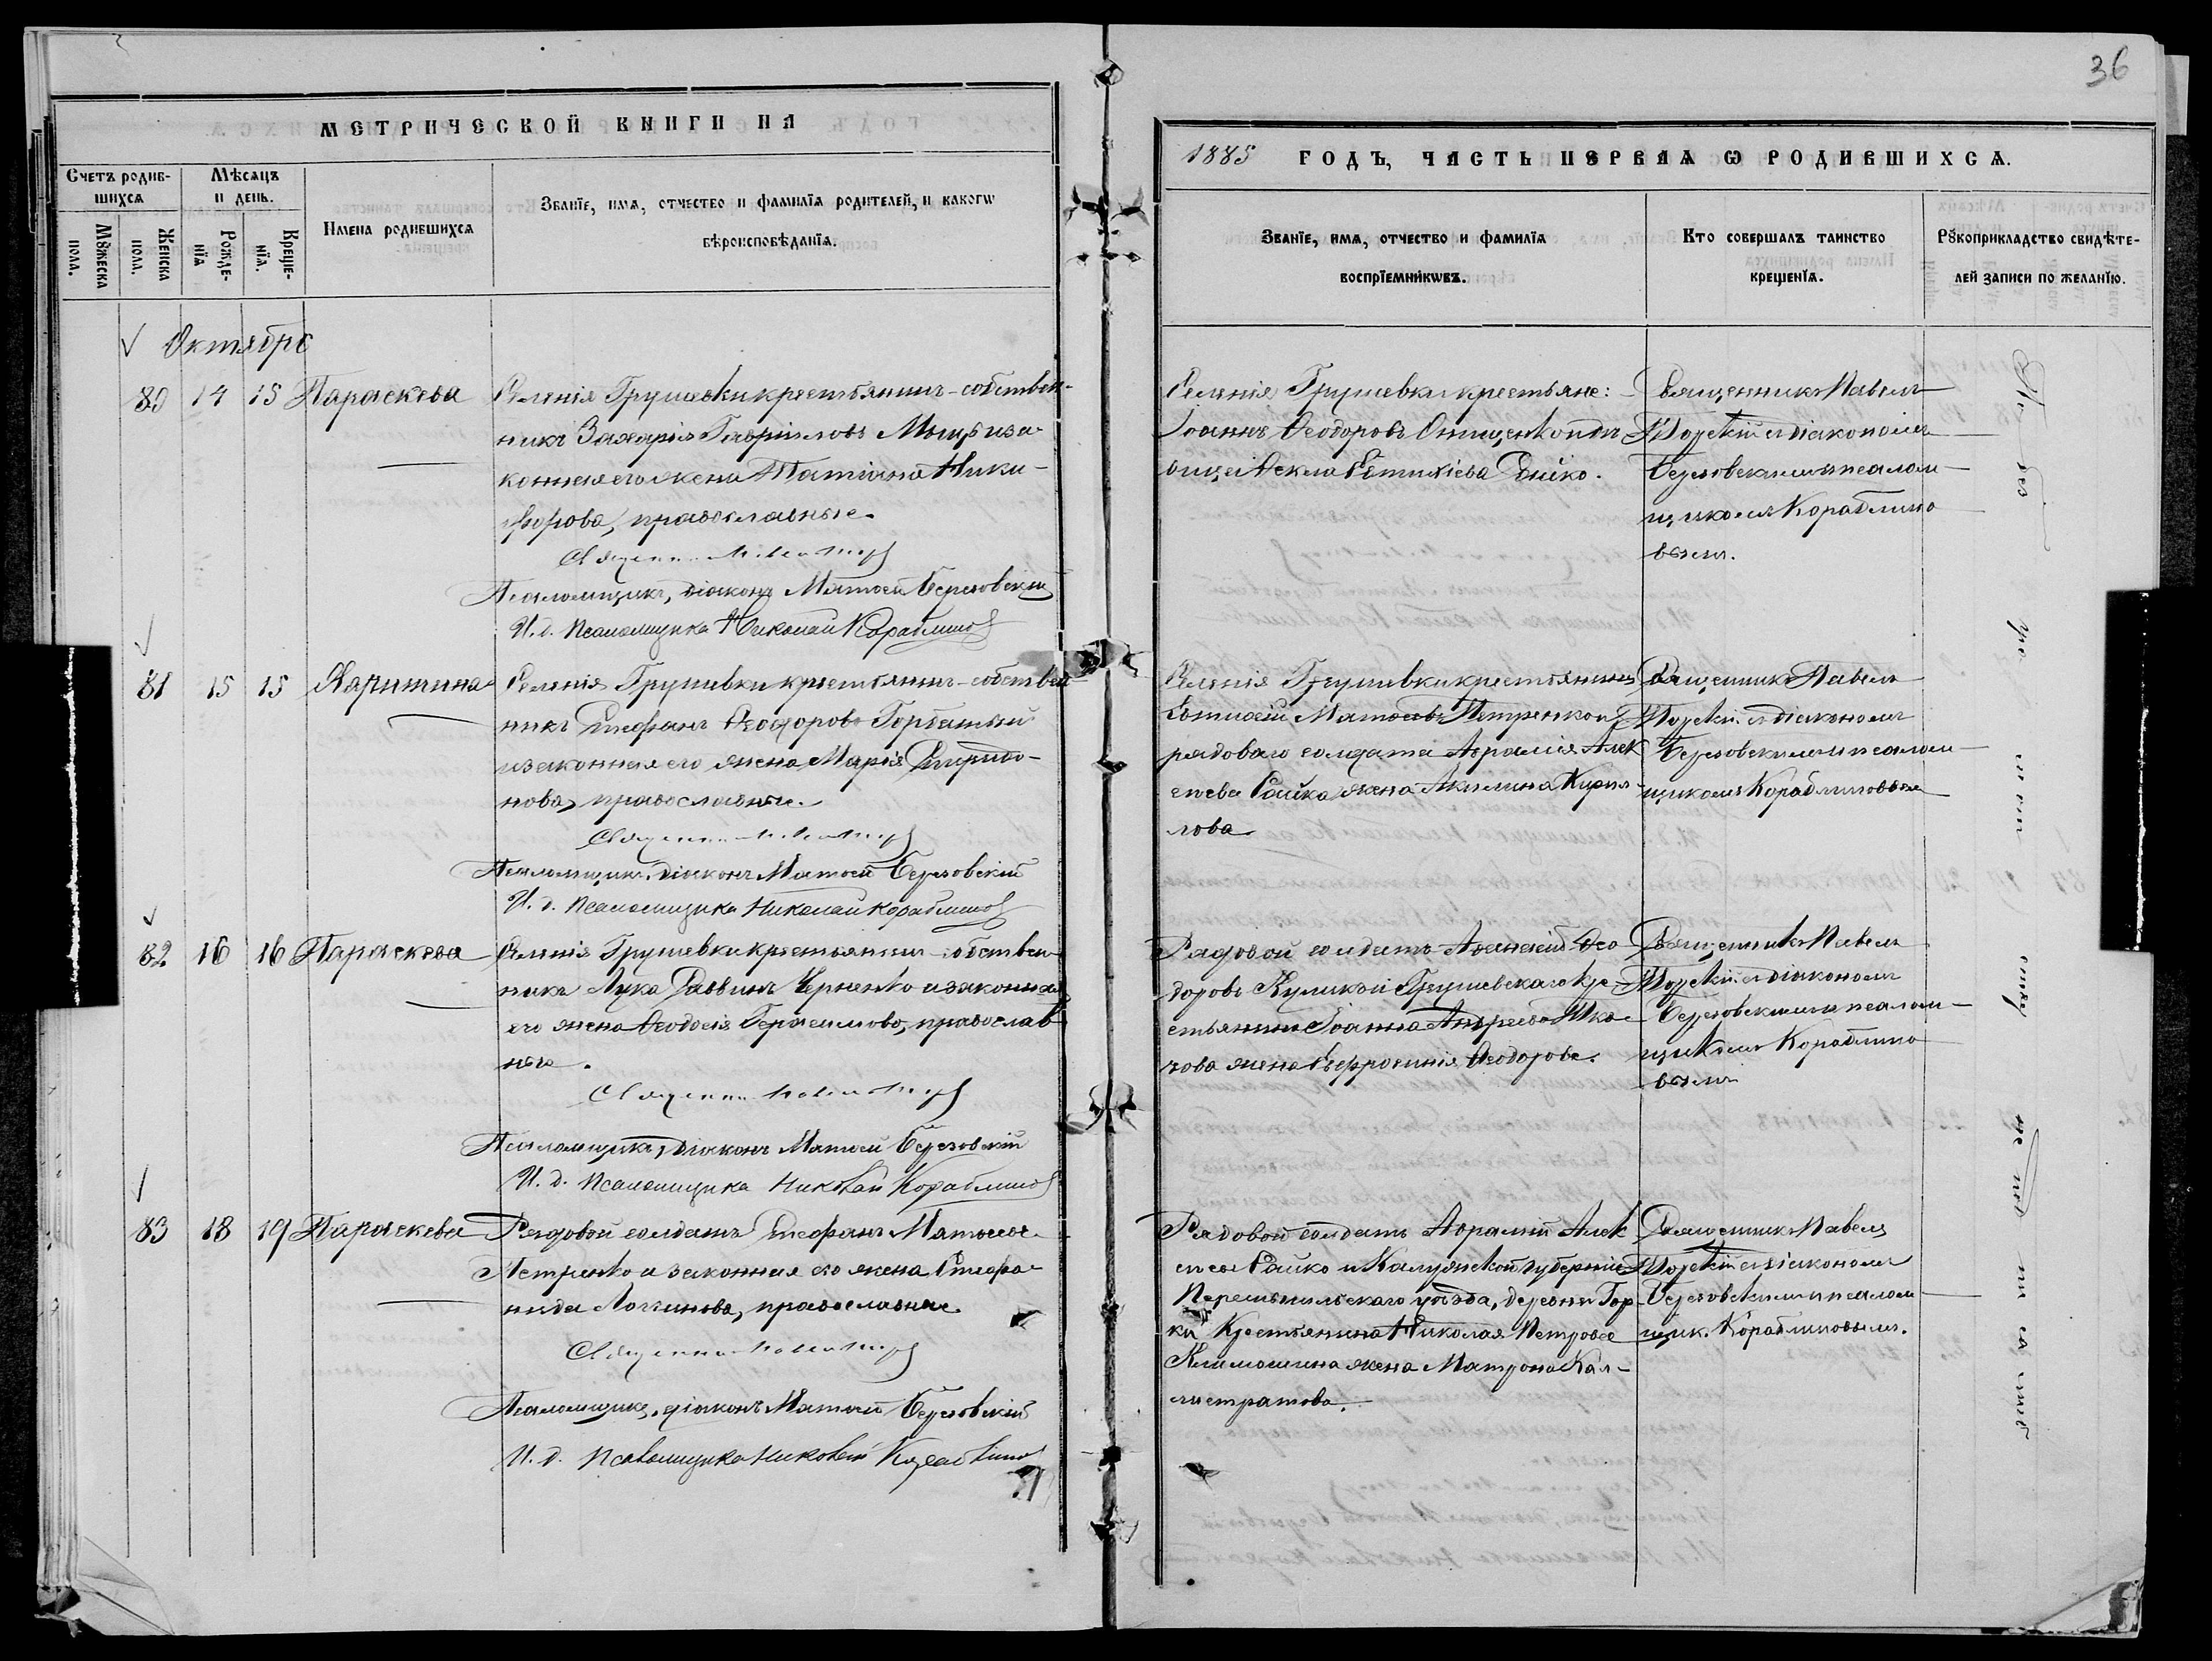 36
МЕТРИЧЕСКОЙ КНИГИ НА
Счетъ родив-
шихся
Мѣсяцъ
и день.
Имена родившихся
Званїе, имя, отчество и фамилїя родителей, и какогѡ
вѣроисповѣданїя.
Мꙋжеска
пола.
Женска
пола.
Рожде-
нїя
Креще-
нїя.
Октябрь
80 14 15 Параскева
Селенія Грушевки крестьянинъ-собствен-
никъ Захарія Гавріиловъ и за-
конная его жена Татіана Ники-
форова, православные.
Псаломщикъ, діаконъ Матѳей Березовскій
И. д. псаломщика Николай Кораблиновъ
81 15 15 Харитина
Селенія Грушевки крестьянинъ-собствен-
никъ Стефанъ Ѳеодоровъ Горбатый
и законная его жена Марія Спиридо-
нова, православные.
Псаломщикъ, діаконъ Матѳей Березовскій
И. д. псаломщика Николай Кораблиновъ
82 16 16 Параскева
Селенія Грушевки крестьянинъ-собствен-
никъ Лука Саввинъ Черненко и законная
его жена Ѳеодосія Герасимова, православ-
ные.
Псаломщикъ, діаконъ Матѳей Березовскій
И. д. псаломщика Николай Кораблиновъ
83 18 19 Параскева
Рядовой солдатъ Стефанъ Матѳеевъ
Петренко и законная его жена Стефа-
нида Логгинова, православные.
Псаломщикъ, діаконъ Матѳей Березовскій
И. д. псаломщика Николай Кораблиновъ
1885 ГОДЪ, ЧАСТЬ ПЕРВАЯ Ѡ РОДИВШИХСЯ.
Званїе, имя, отчество и фамилїя
воспрїемникѡвъ.
Кто совершалъ таинство
крещенїя.
Рꙋкоприкладство свидѣте-
лей записи по желанїю.
Селенія Грушевки крестьяне:
Іоаннъ Ѳеодоровъ Онищенко и
Ѳекла Евтихіева
Священникъ Павелъ
съ діакономъ
Березовскимъ и псалом-
щикомъ Кораблино-
вымъ.
Селенія Грушевки крестьянинъ
Евтихій Матѳеевъ Петренко и
рядоваго солдата Аврамія Алек
сѣева Сайка жена Акилина Кирил-
лова
Священникъ Павелъ
съ діакономъ
Березовскимъ и псалом-
щикомъ Кораблиновымъ
Рядовой солдатъ Аѳанасій Ѳео-
доровъ Куликъ и Грушевскаго кре-
стьянина Іоанна Андреева
жена Евфросинія Ѳеодорова.
Священникъ Павелъ
съ діакономъ
Березовскимъ и псалом-
щикомъ Кораблино-
вымъ
Рядовой солдатъ Аврамій Алек
сѣевъ Сайко и Калужской губерніи
Перемышльскаго уѣзда, деревни Гор-
ки крестьянина Николая Петрова
Климошина жена Матрона Кал-
листратова.
Священникъ Павелъ
съ діакономъ
Березовскимъ и псалом
щик. Кораблиновымъ.